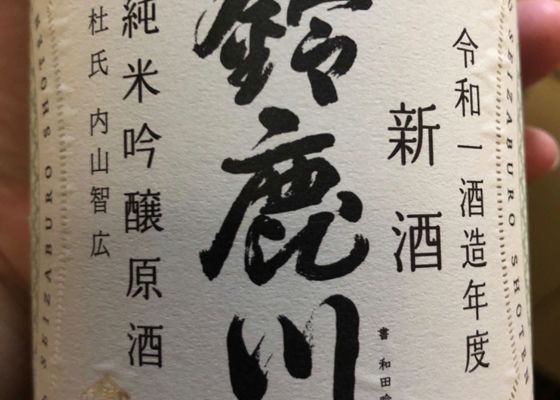 令和一酒造年度
新酒
鈴鹿川
書 和田
純米吟醸原酒
杜氏 内山智広
SEIZABURO SHOTEN
SEIZABURO SHOTEN